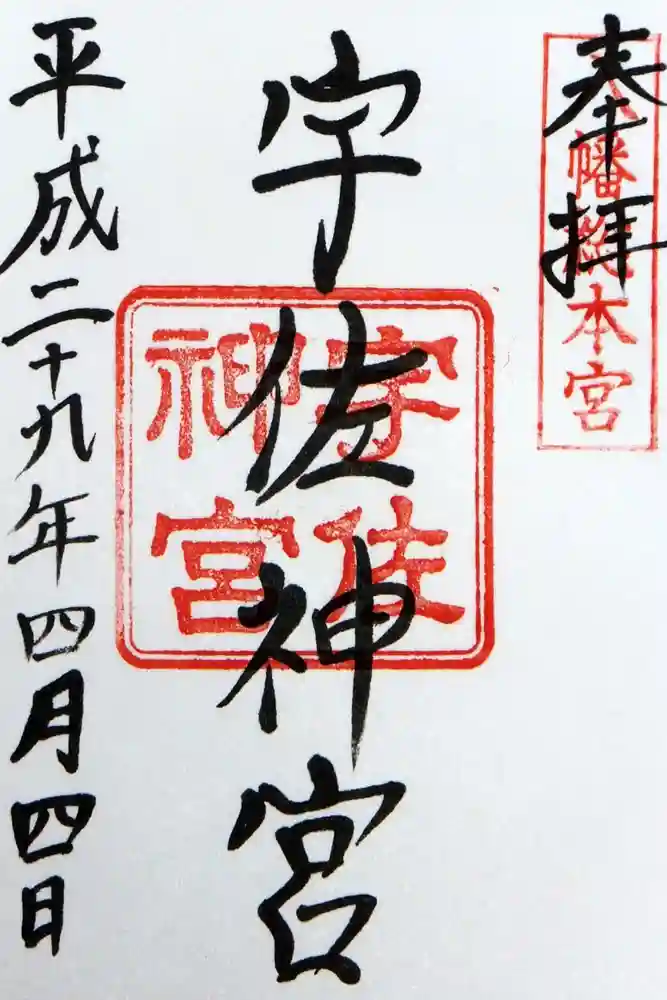 奉拝
八幡総本宮
宇佐神宮
宇佐
神宮
平成二十九年四月四日